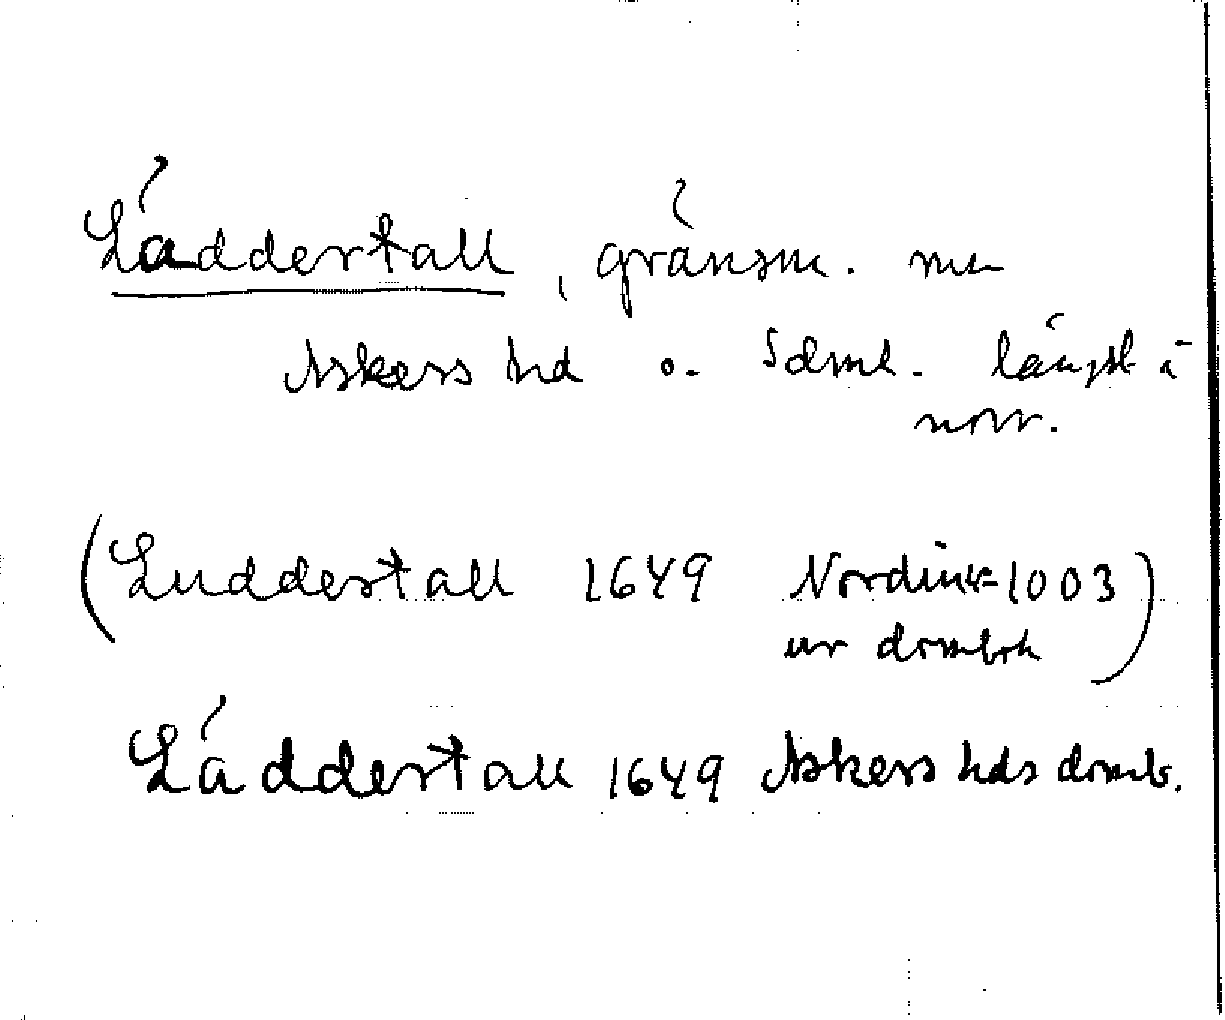 Läddertall, gränsm. m
Askers hd o. Sdml. längst i
norr.
(Luddestall 1649 Nordink 1003)
ur dombok
Läddertall 1649 Askers hds domb.